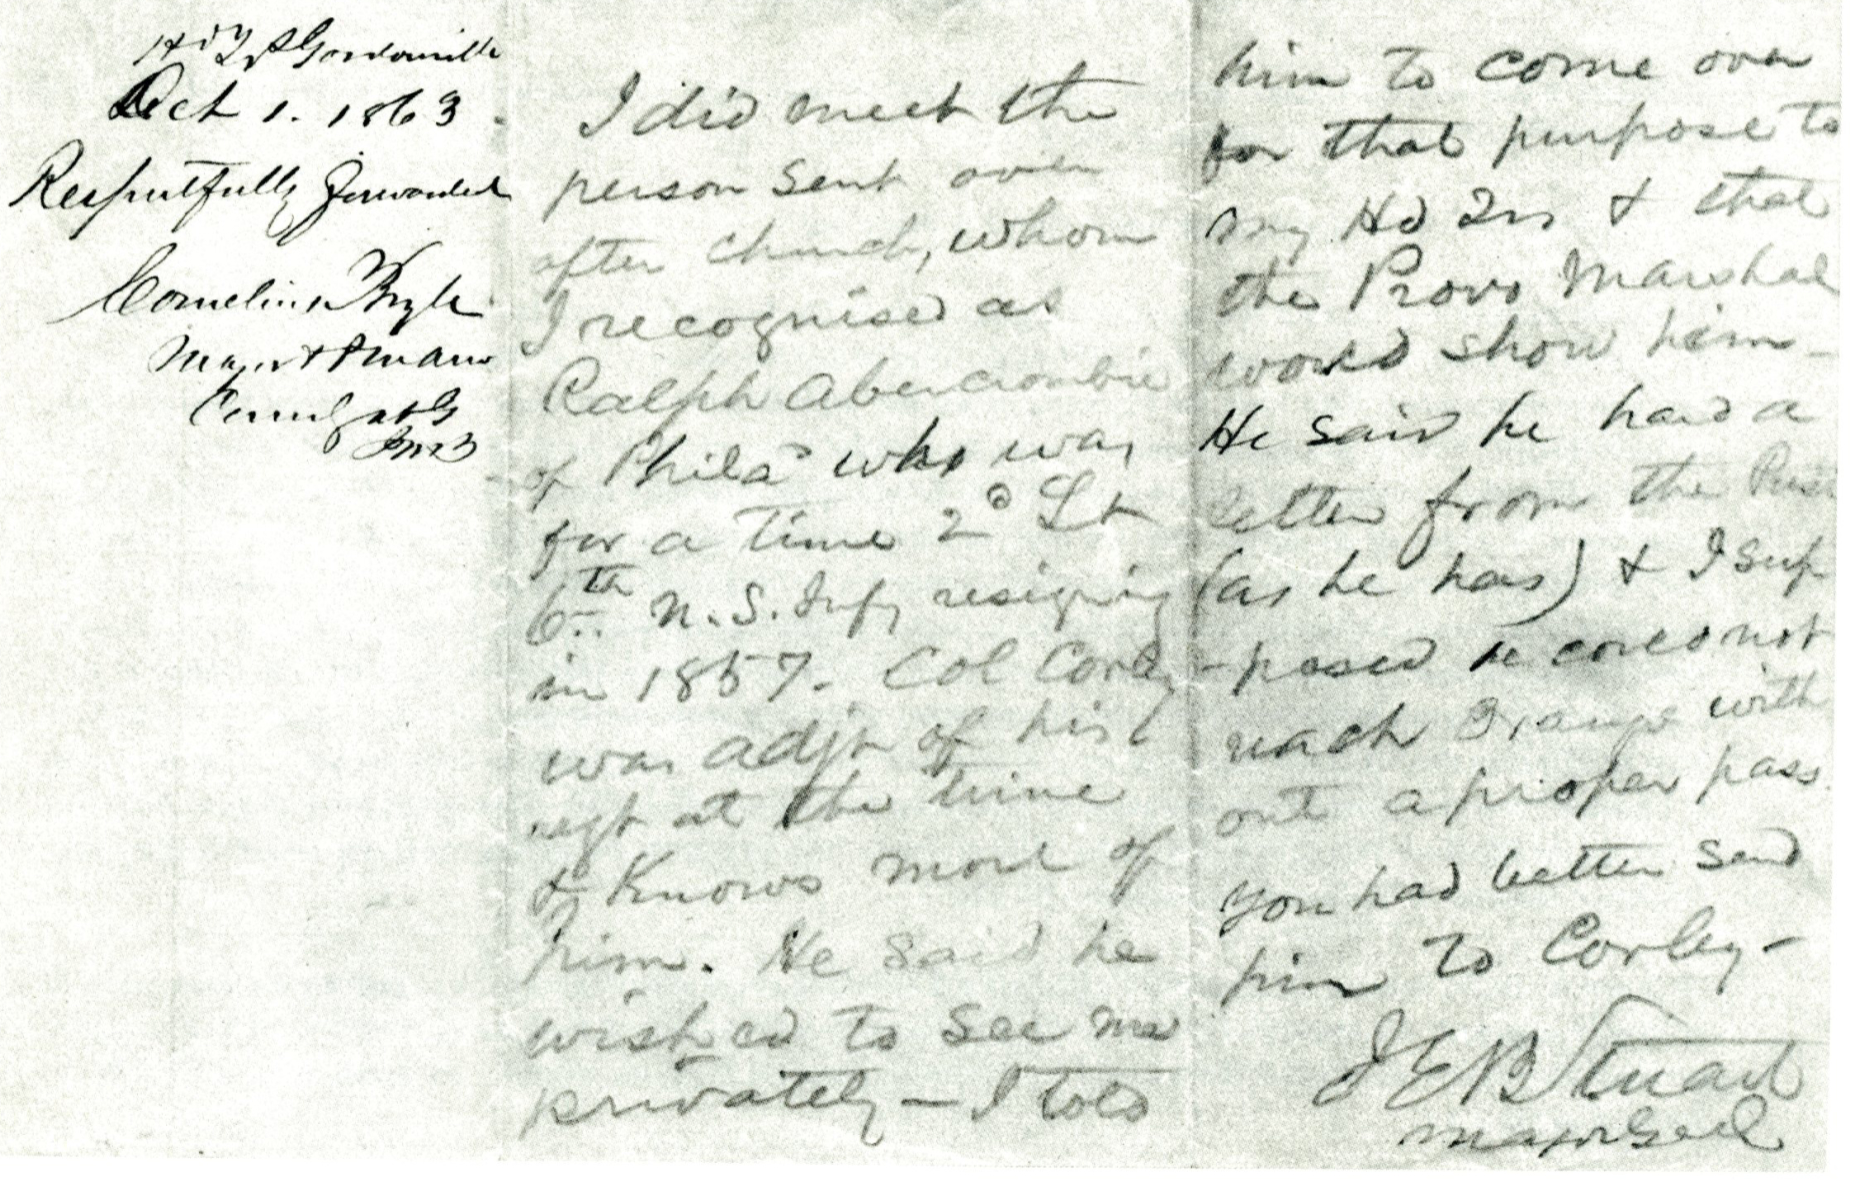 Hd Qrs Gordonsville
Oct 1. 1863.
Respectfully forwarded
Cornelius Boyle
Major &
I did meet the
person sent over
after church, whom
I recognised as
Ralph Abercrombie
of Phila who was
for a time 2d Lt
6th U.S. Infy resigning
in 1857. Col Corley
was adjt of his
regt at the time
& Knows most of
him. He said he
wished to see me
privately — I told
him to come over
for that purpose to
my Hd Qrs & that
the Provo Marshal
would show him —
He said he had a
letter from the Prest
(as he has) & I sup
-posed he could not
reach Orange with
out a proper pass
you had better send
him to Corley —
JEB Stuart
Maj Genl